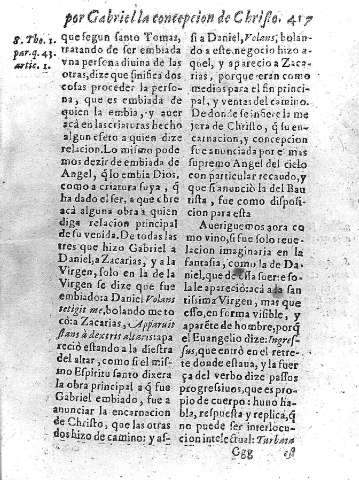 por Gabriel la concepcion de Christo. 417
S. Tho. 1.
par. q. 43.
artic. 1.
que segun santo Tomas,
tratando de ser embiada
vna persona diuina de las
otras, dize que sinifica dos
cosas proceder la perso-
na, que es embiada de
quien la embia, y auer
acá en las criaturas hecho
algun efeto a quien dize
relacion. Lo mismo pode
mos dezir de embiada de
Angel, q̃ lo embia Dios,
como a criatura suya, q̃
ha dado el ser, a que obre
acá alguna obra a quien
diga relacion principal
de su venida. De todas las
tres que hizo Gabriel a
Daniel, a Zacarias, y a la
Virgen, solo en la de la
Virgen se dize que fue
embiado: a Daniel Volans
tetigit me, bolando me to
cò: a Zacarias, Apparuit
stans à dextris altaris: apa
recio estando a la diestra
del altar, como si el mis-
mo Espiritu santo dixera
la obra principal a q̃ fue
Gabriel embiado, fue a
anunciar la encarnacion
de Christo, que las otras
dos hizo de camino: y as-
si a Daniel, Volans, bolan-
do a este negocio hizo a-
quel, y aparecio a Zaca-
rias, porque eran como
medias para el fin princi-
pal, y ventas del camino.
De donde se infiere la me
jora de Christo, q̃ su en-
carnacion, y concepcion
fue anunciada por el mas
supremo Angel del cielo
con particular recaudo, y
que si anunciò la del Bau
tista, fue como disposi-
cion para esta
Aueriguemos aora co
mo vino, si fue solo reue-
lacion imaginaria en la
fantasia, como la de Da-
niel, que de essa suerte so-
la le apareciò: acà a la san
tissima Virgen, mas que
esso, en forma visible, y
aparẽte de hombre, porq̃
el Euangelio dize: Ingres-
sus, que entrò en el retre-
te donde estaua, y la fuer
ça del verbo dize passos
progressiuos, que es pro-
pio de cuerpo: huuo ha-
bla, respuesta y replica, q̃
no puede ser interlocu-
cion intelectual: Turbata
Ggg est